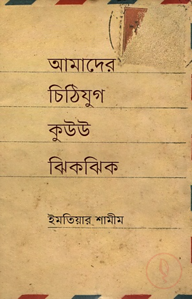 আমাদের
চিঠিযুগ
কুউউ
ঝিকঝিক
ইমতিয়ার শামীম